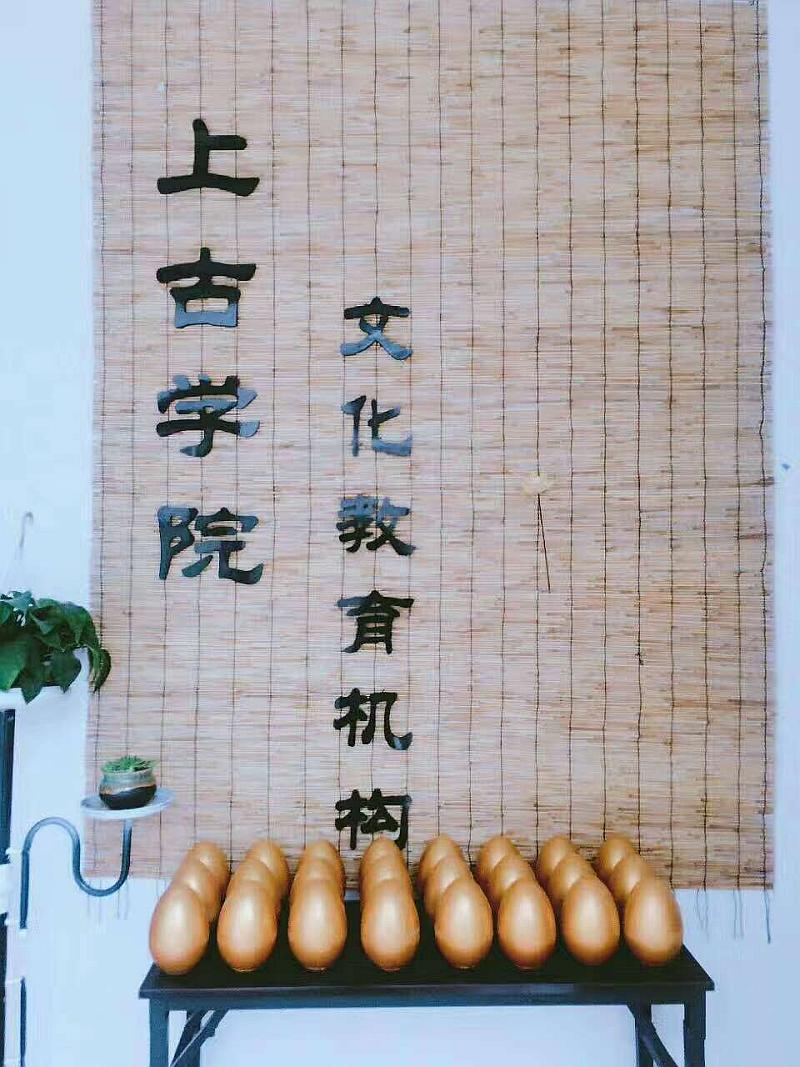 上古学院
文化教育机构